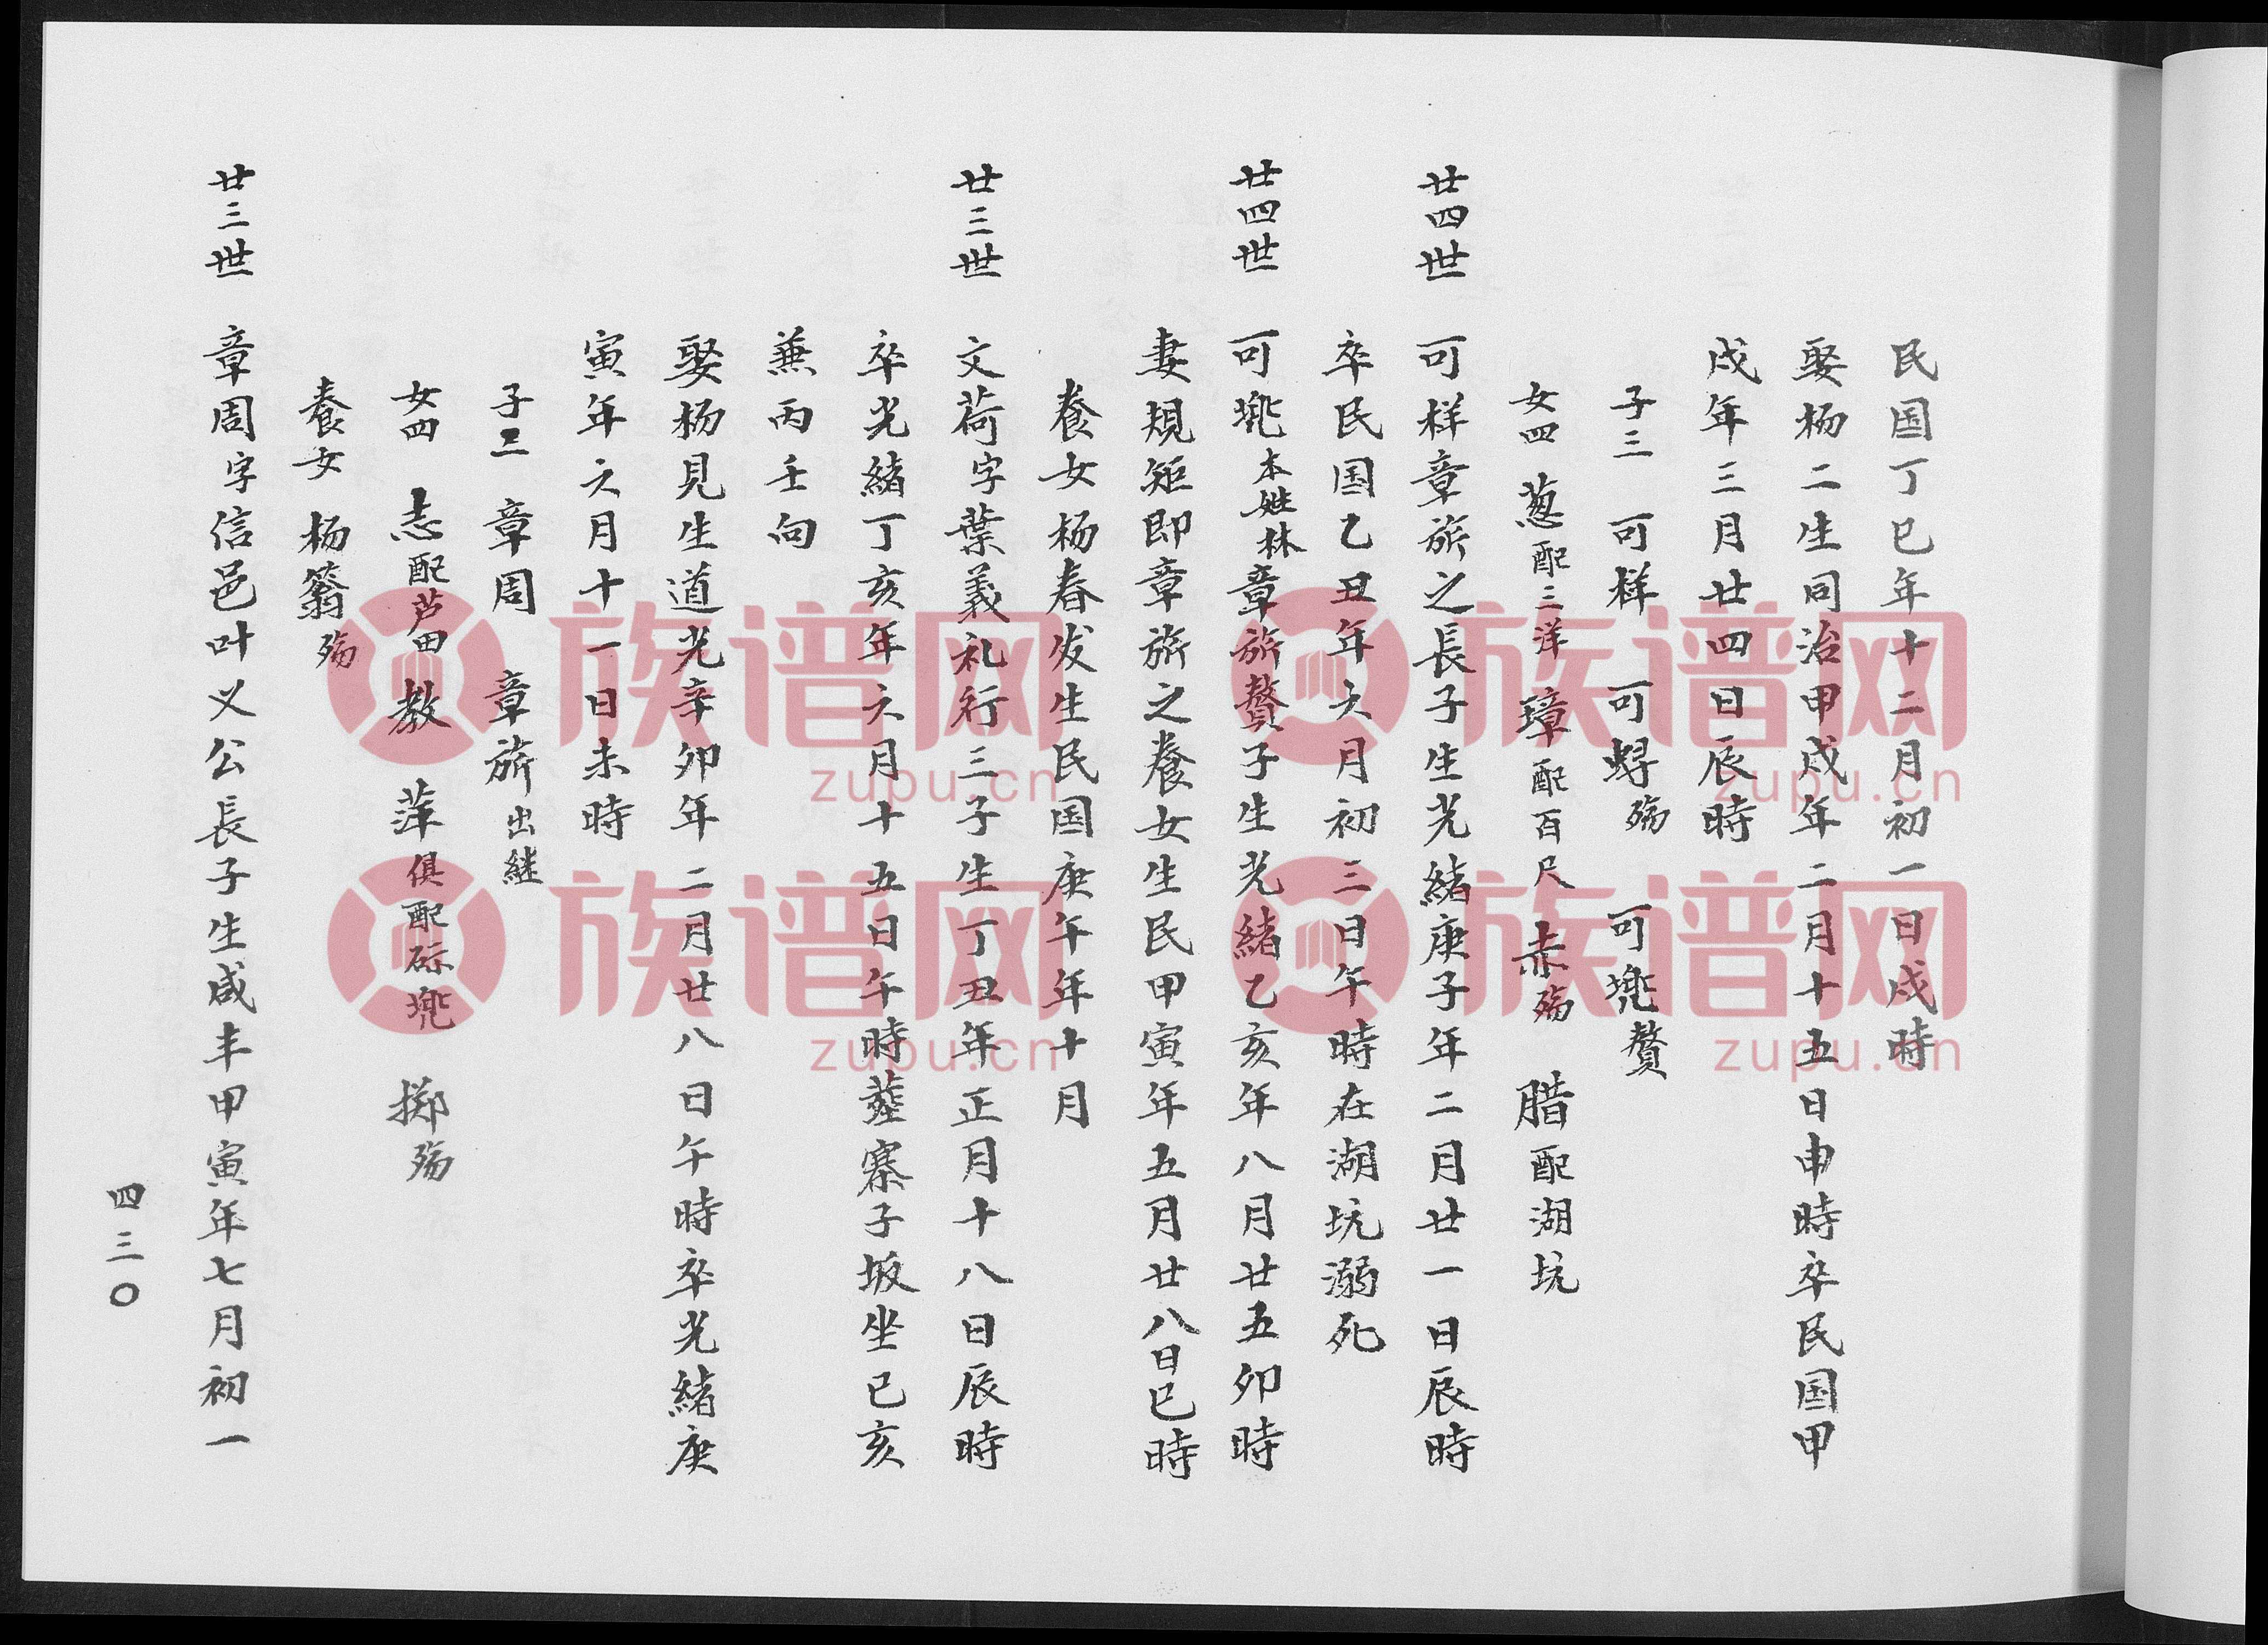 民国丁巳年十二月初一日戌時
娶杨二生同治甲戌年二月十五日申時卒民国甲
戌年三月廿四日辰時
子三 可样 可蟳殇 可兠贅
女四 葱配三洋 璋配百尺 赤殇 腊配湖坑
廿四世 可样章旂之長子生光緒庚子年二月廿一日辰時
卒民国乙丑年六月初三日午時在湖坑溺死
廿四世 可兠本姓林章旂贅子生光緒乙亥年八月廿五卯時
妻規矩即章旂之養女生民甲寅年五月廿八日巳時
養女杨春发生民国庚午年十月
廿三世 文荷字葉義礼行三子生丁丑年正月十八日辰時
卒光緒丁亥年六月十五日午時塟寨子坂坐巳亥
蒹丙壬向
娶杨見生道光辛卯年二月廿八日午時卒光緒庚
寅年六月十一日未時
子二 章周 章旂出継
女四 志配芦田 教 萍俱配砾兠 掷殇
養女 杨蓊殇
廿三世 章周字信邑叶义公長子生咸丰甲寅年七月初一
四三〇
族谱网
zupu.cn
族谱网
zupu.cn
族谱网
zupu.cn
族谱网
zupu.cn